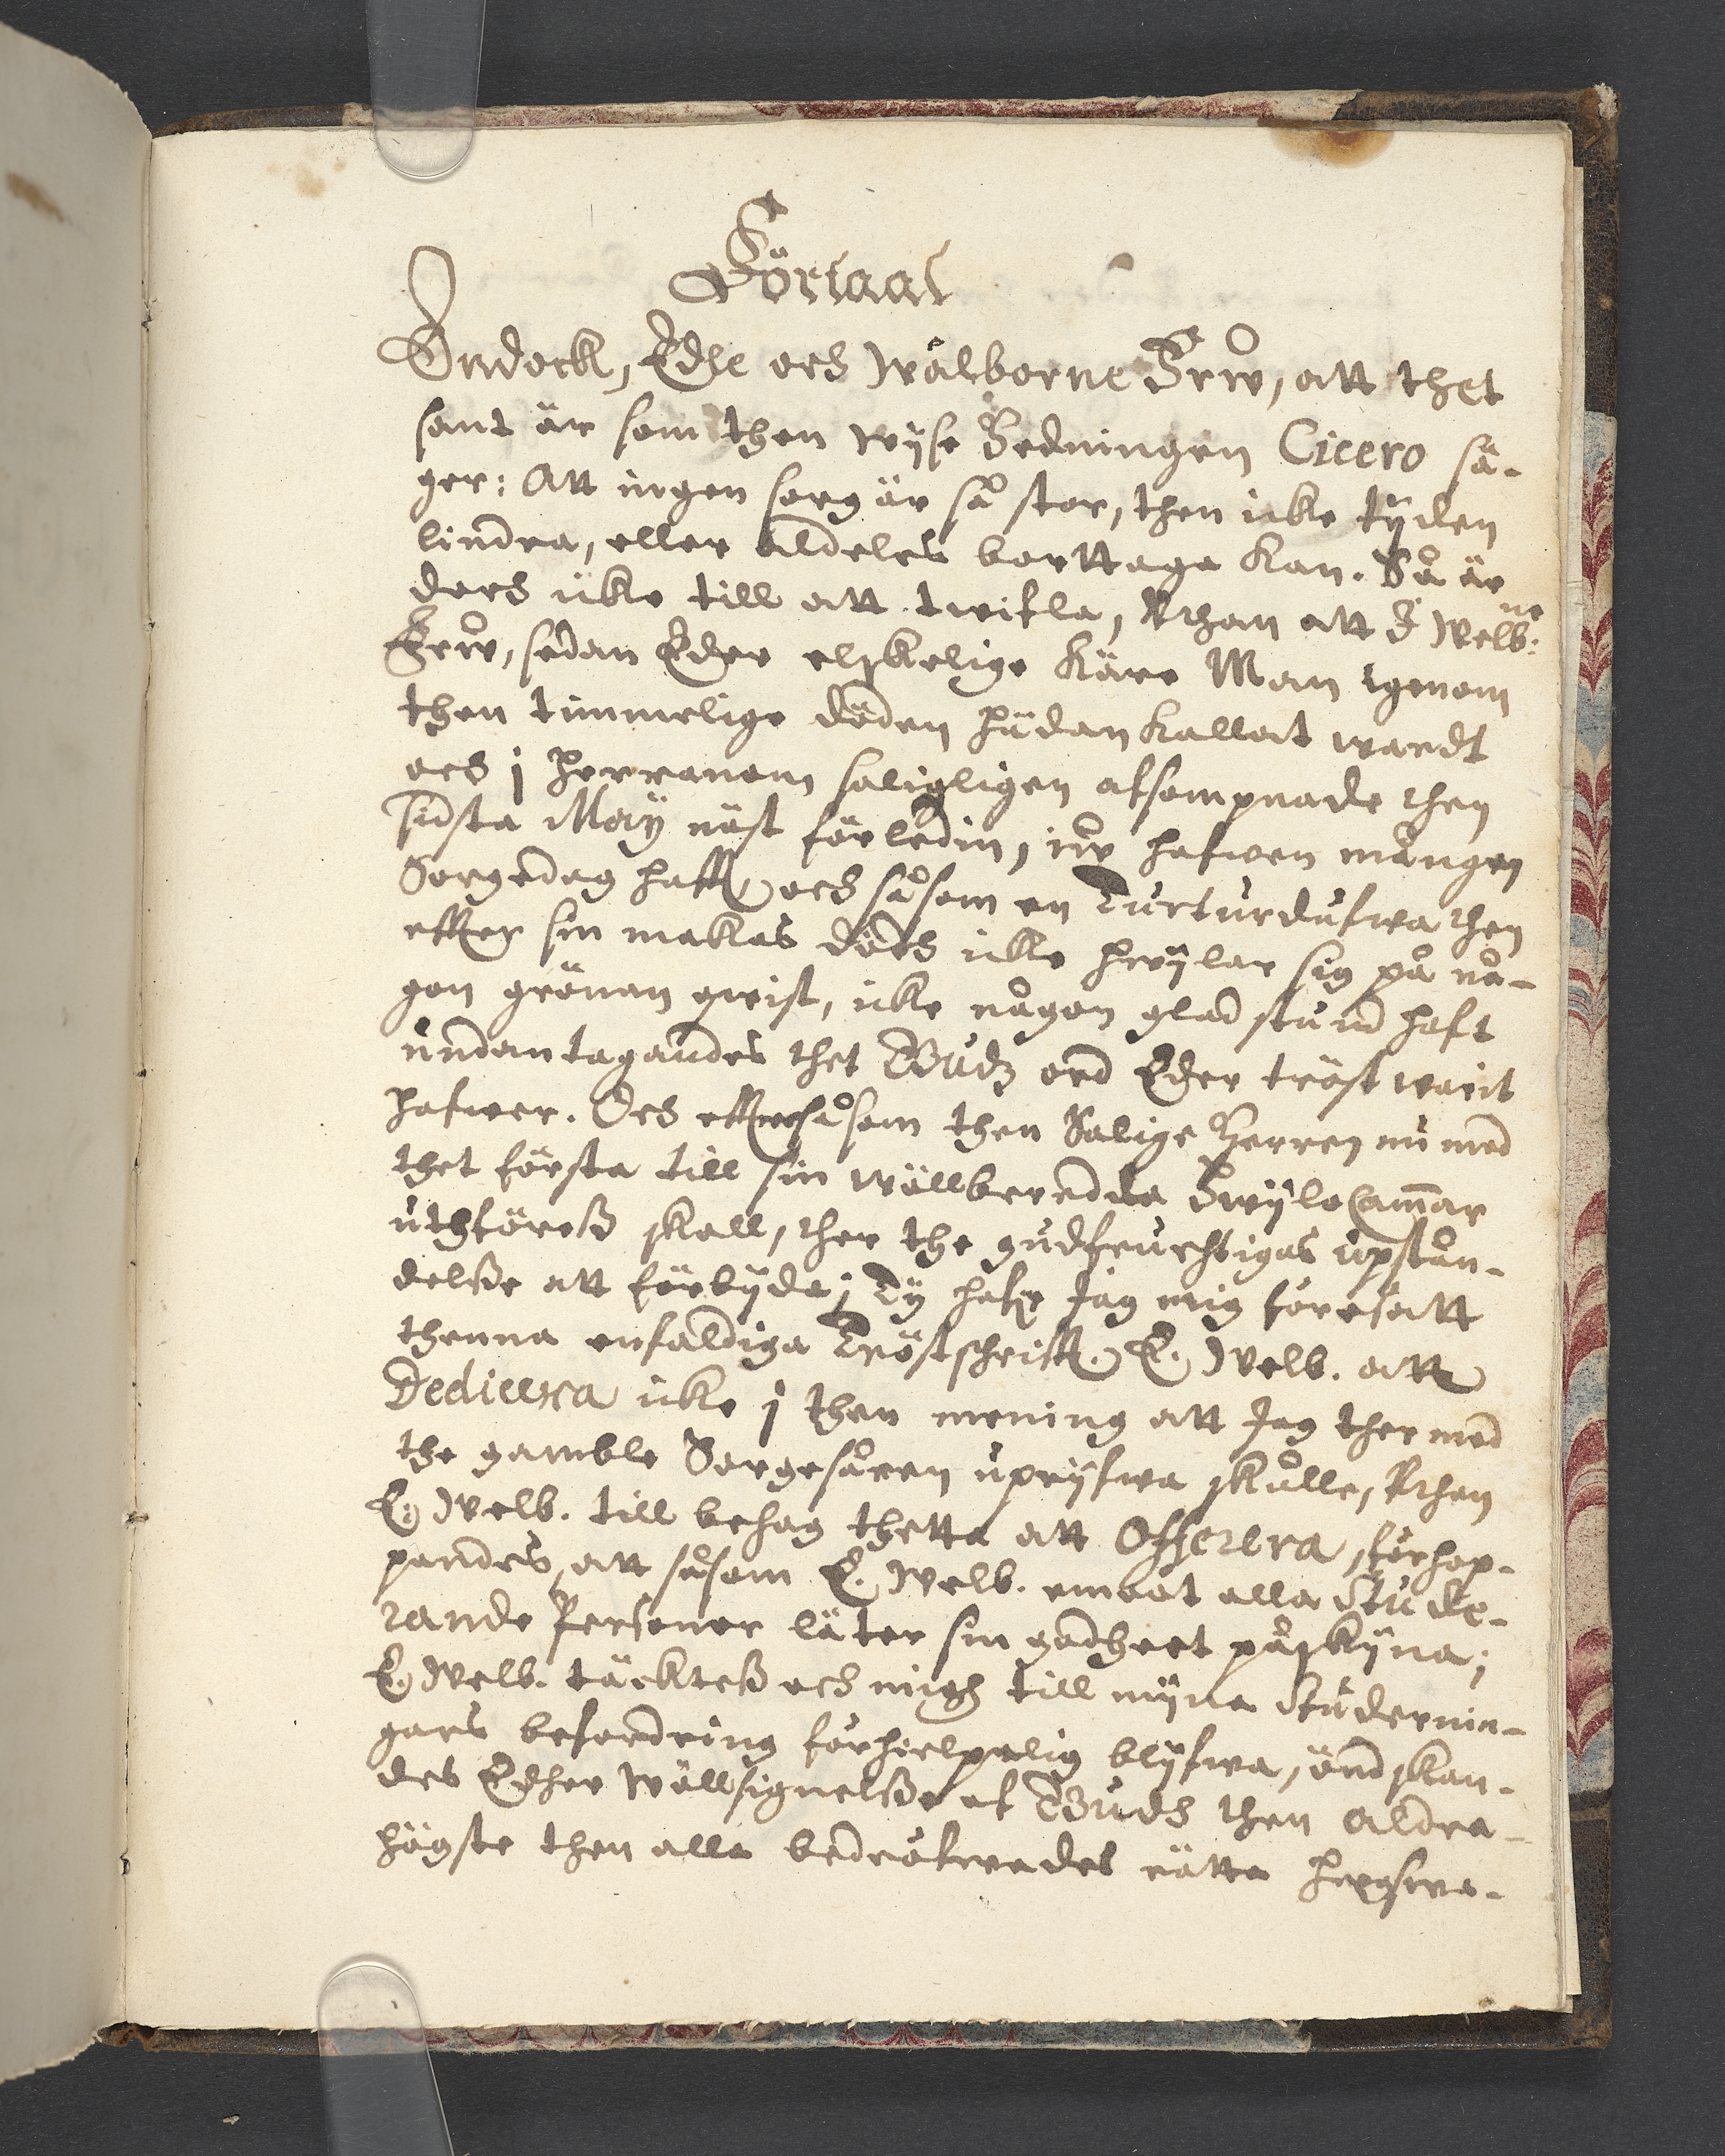 Förtaal
Ändock, Edle och Wälborne Frw, att thet
sant är som then wyse Hedningen Cicero sä-
ger: Att ingen sorg är så stor, then icke tijden
lindra, eller aldeles borttaga kan. Så är
doch icke till att twifla, uthan att E Welb:ne
Frw, sedan Eder elskelige käre Man igenom
then timmelige döden hädan kallat wardt
och j Herranom saligligen afsompnade then
sidsta Maij näst förleden, jw hafwer mången
Sorgedag hafft, och såsom en Turturdufwa then
effter sin makas dödh icke hwijlar sig på nå-
gon grönan qwist, icke någon glad stund haft
undantagandes thet Gudz ord Eder tröst warit
hafwer. Och effter såsom then Salige Herren nu med
thet första till sin wällberedda HwijloCammar
uthföreß skall, ther the gudfruchtigas upstån-
delße att förbijda; Ty hafr Jag mig föresatt
thenna enfaldiga Tröstschrifft E. Welb. att
Dedicera icke j then mening att Jag ther med
the gamble Sorgesåren uprijfwa skulle, uthan
E. Welb. till behag thetta att Offerera, förhop-
pandes, att såsom E. Welb. emoot alla Stude-
rande Personer läter sin godheet påskijna;
E. Welb. täckteß och migh till mijna Studernin-
gars befordring förhielpelig blijfwa, önskan-
des Edher wällsignelße af Gudh then aldra-
högste then alla bedröfwades rätta hugswa-